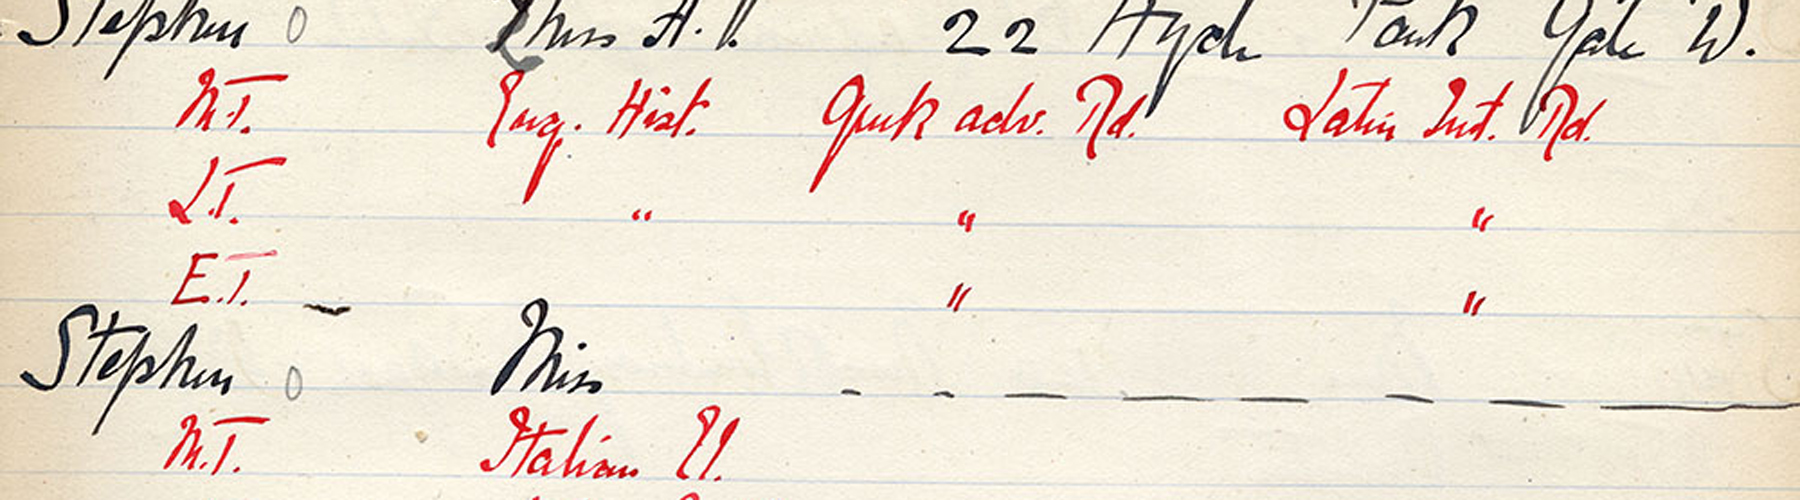 Stephen 0 Miss A. V. 22 Hyde Park Gate W.
M.T. Eng. Hist. Greek adv. Rd. Latin Int. Rd.
L.T. " " "
E.T. " "
Stephen 0 Miss - - - - - - - -
M.T. Italian El.